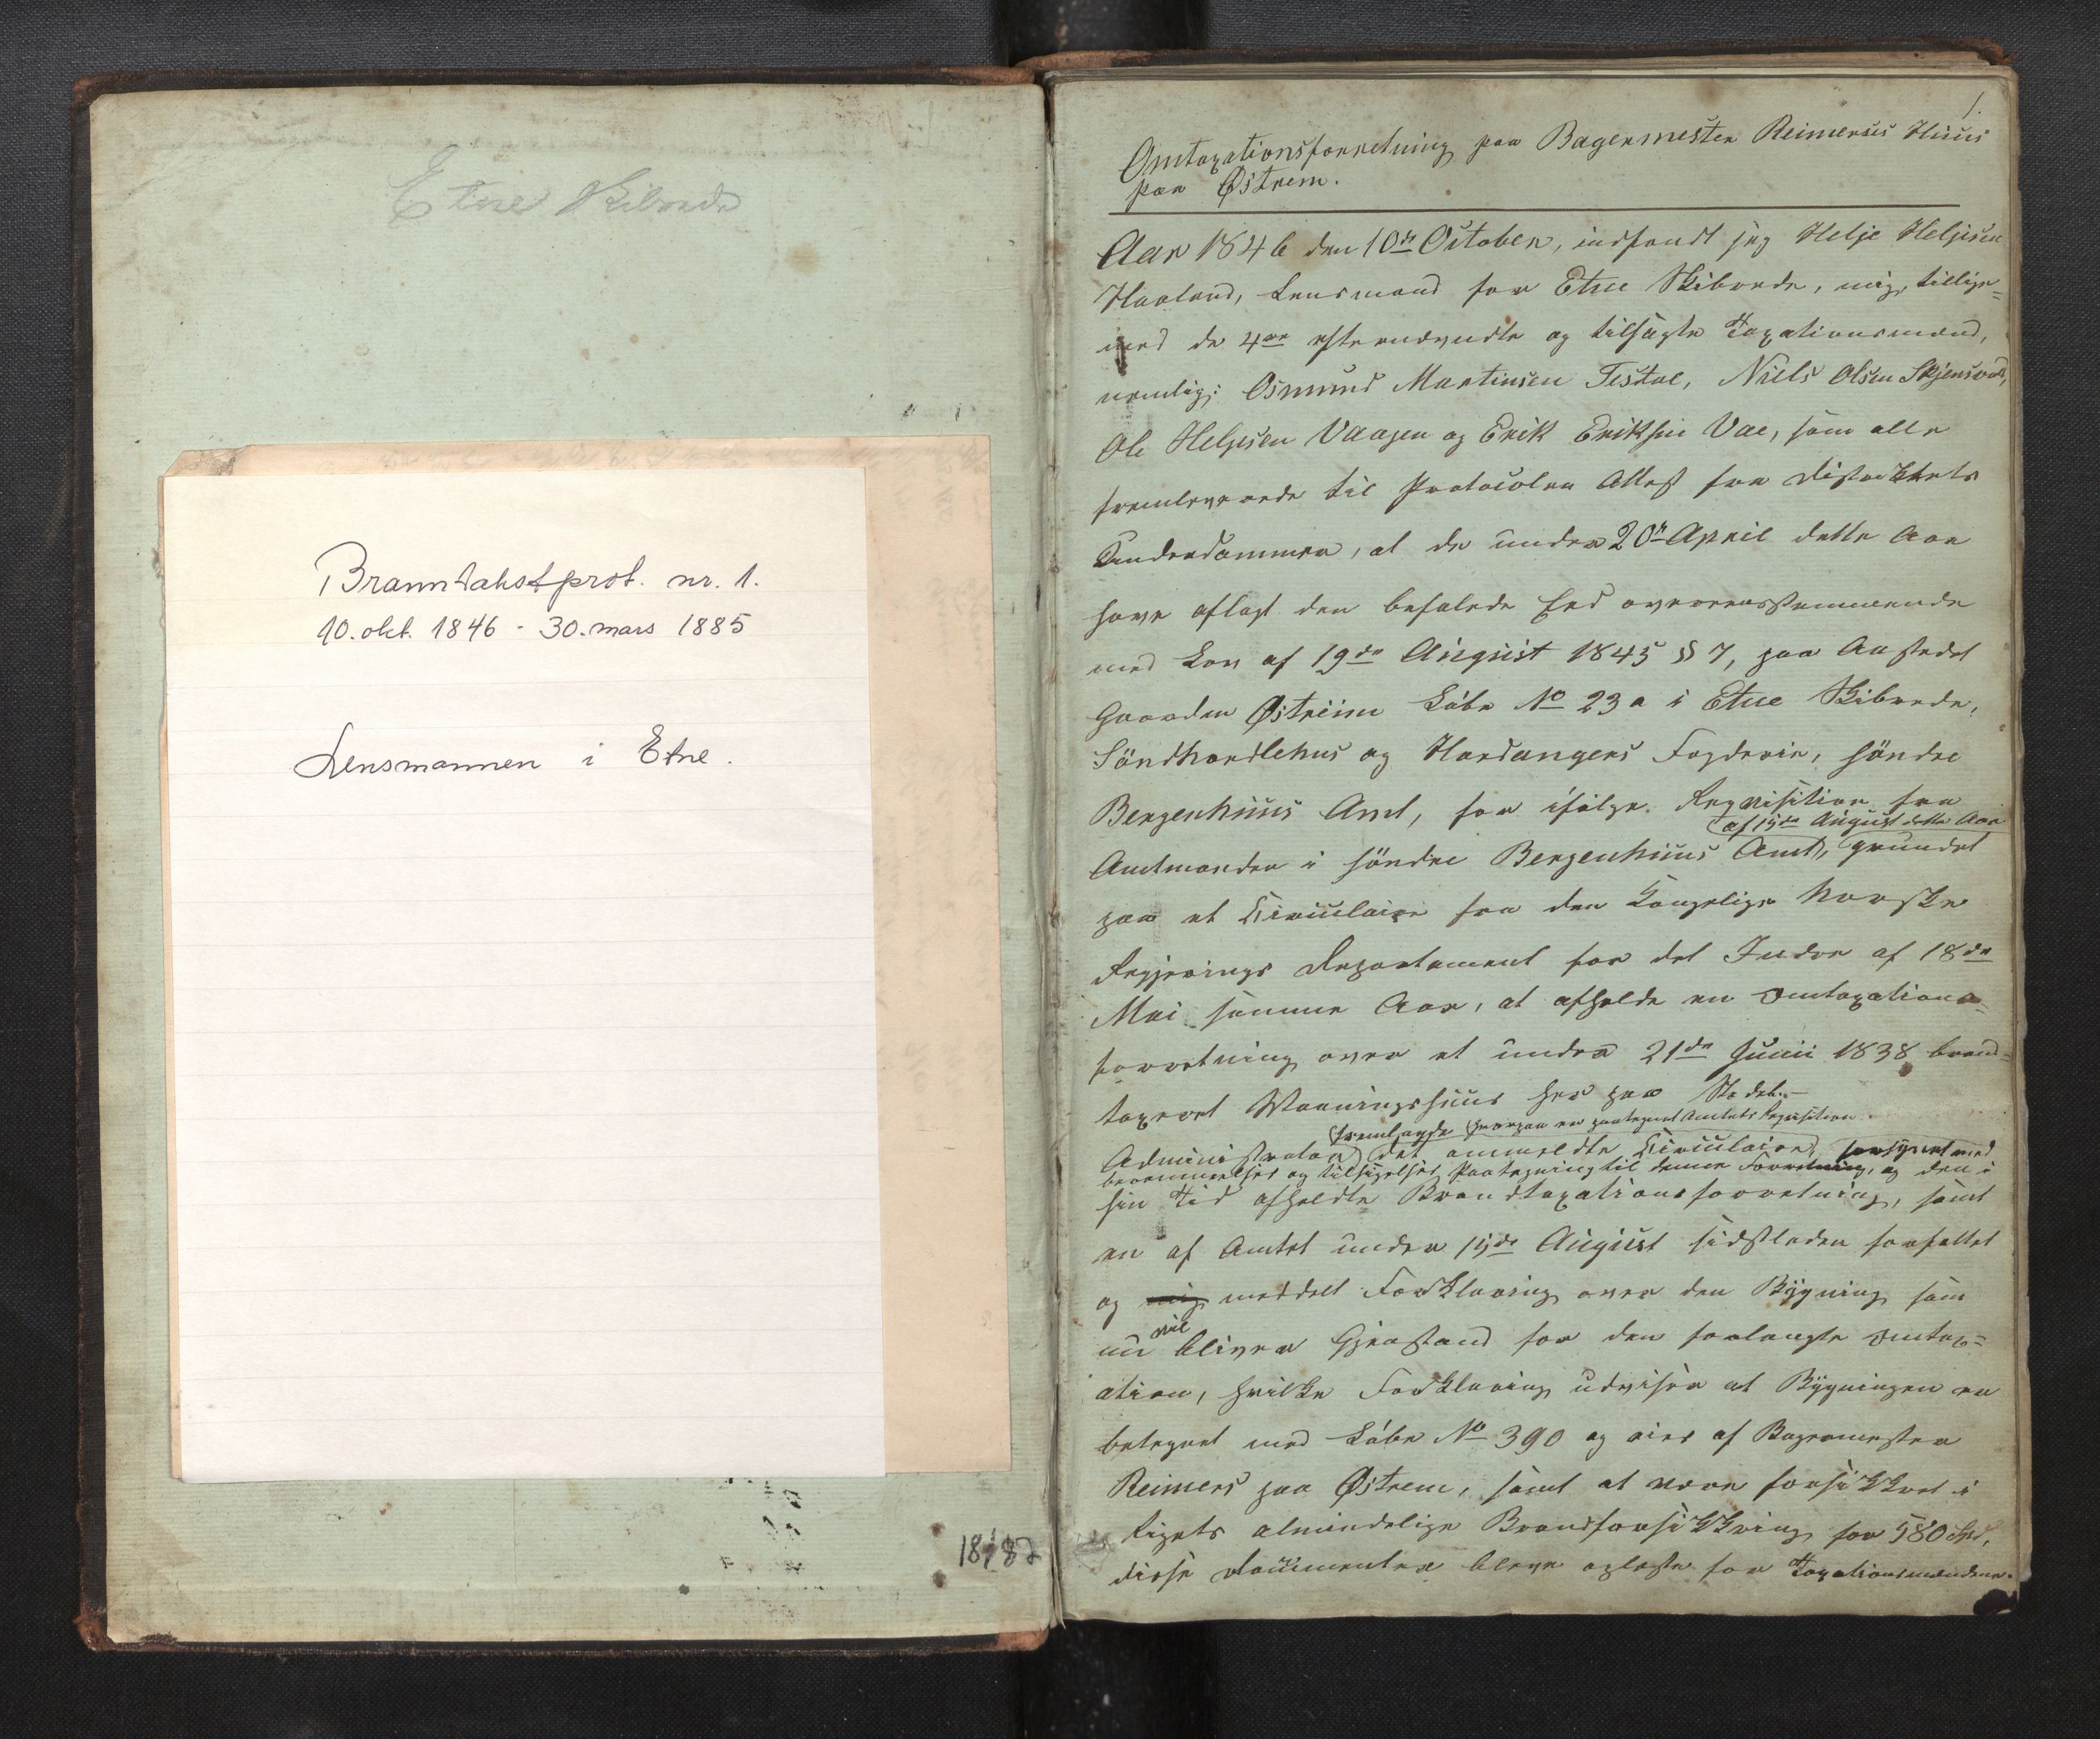 Etne Skibrede
Branntakstprot. nr. 1.
10. okt. 1846 - 30. mars 1885
Lensmannen i Etne.
1.
Omtaxationsforretning paa Bagermester Reimerses Huus
paa Østrem.
Aar 1846 den 10de October, indfandt jeg Helje Heljesen
Haaland, Lensmand for Etne Skibrede, mig, tillige=
med de 4re efternævndte og tilsagte Taxationsmænd,
nemlig: Osmund Martinsen Testal, Niels Olsen
Ole Heljesen Vaagen og Erik Eriksen Vae, som alle
fremleverede til Protocolen Attest fra Distriktets
, at de under 20de April dette Aar
have aflagt den befalede Eed overeensstemmende
med Lov af 19de August 1845 § 7, paa Aastedet
Gaarden Østreim Løbe No 23 a i Etne Skibrede,
Söndhordlehns og Hardangers Fogderie, söndre
Bergenhuus Amt, for ifølge Requisition fra
af 15de August dette Aar
Amtmanden i söndre Bergenhuus Amt, grundet
paa et Circulaire fra den Kongelige Norske
Regjerings Departement for det Indre af 18de
Mai samme Aar, at afholde en Omtaxations=
forretning over et under 21de Junii 1838 brand=
taxeret Vaaningshuus her paa Stedet.-
fremlagde hvorpaa er paategnet Amtets Requisition
Administrator det anmeldte Circulaire, forsynet med
berammelses og tilsigelses Paategning til denne Forretning, og den i
sin Tid afholdte Brandtaxationsforretning, samt
en af Amtet under 15de August sidstleden forfattet
og mig meddelt Forklaring over den Bygning som
vil
nu bliver Gjenstand for den forlangte Omtax=
ation, hvilke Forklaring udviser at Bygningen er
betegnet med Løbe No 390 og eies af Bagermester
Reimers paa Østrem, samt at være forsikkret i
Rigets almindelige Brandforsikkring for 580 Spd,
disse Documenter bleve oplæste for Taxationsmændene.